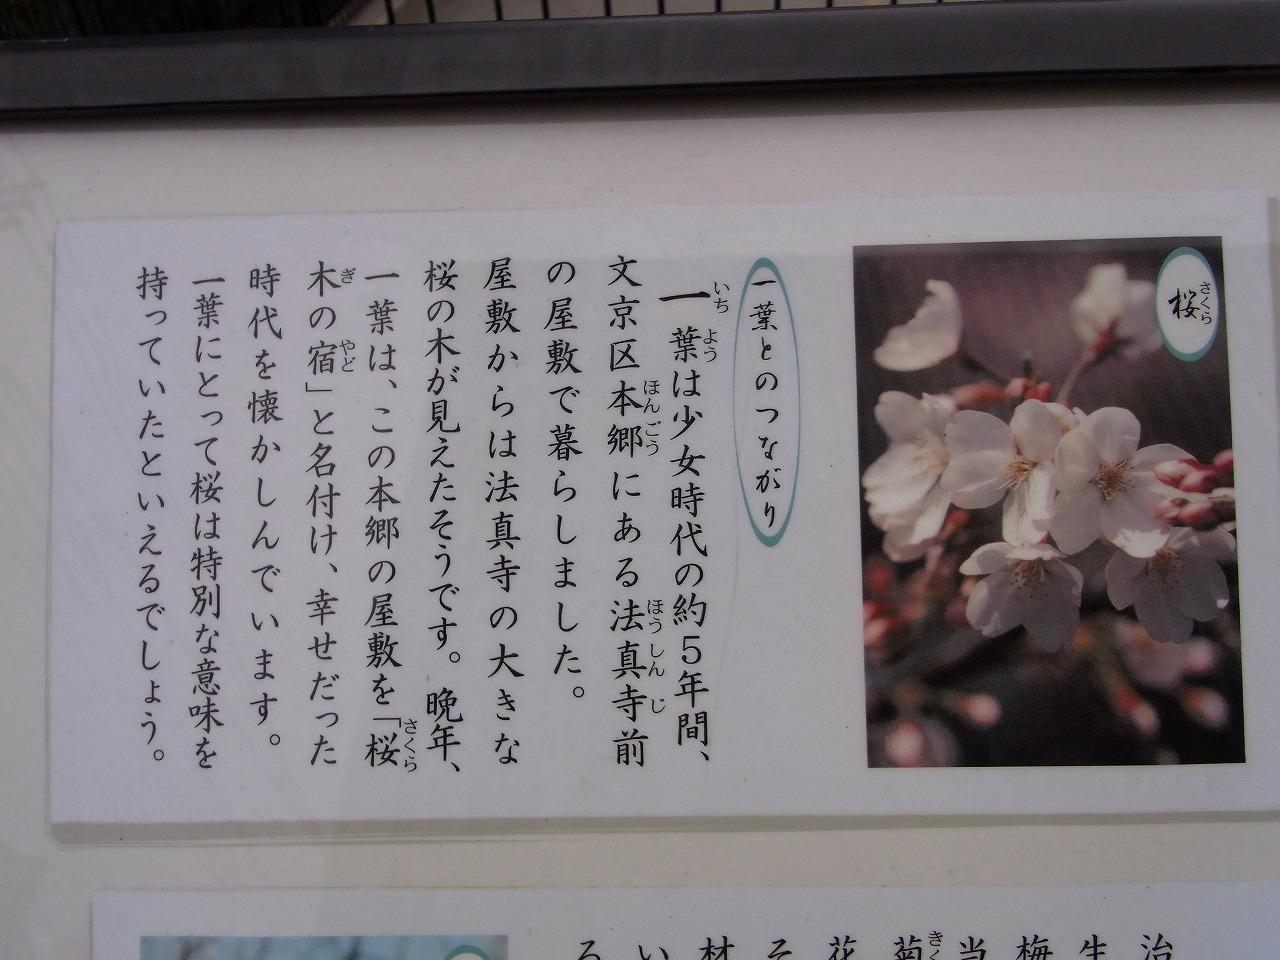 桜
さくら
一葉とのつながり
一葉は少女時代の約5年間、
いち よう
文京区本郷にある法真寺前
ほんごう ほうしん じ
の屋敷で暮らしました。
屋敷からは法真寺の大きな
桜の木が見えたそうです。晩年、
一葉は、この本郷の屋敷を「桜
さくら
木の宿」と名付け、幸せだった
ぎ やど
時代を懐かしんでいます。
一葉にとって桜は特別な意味を
持っていたといえるでしょう。
治
生
梅
当
菊
きく
花
そ
材
い
る